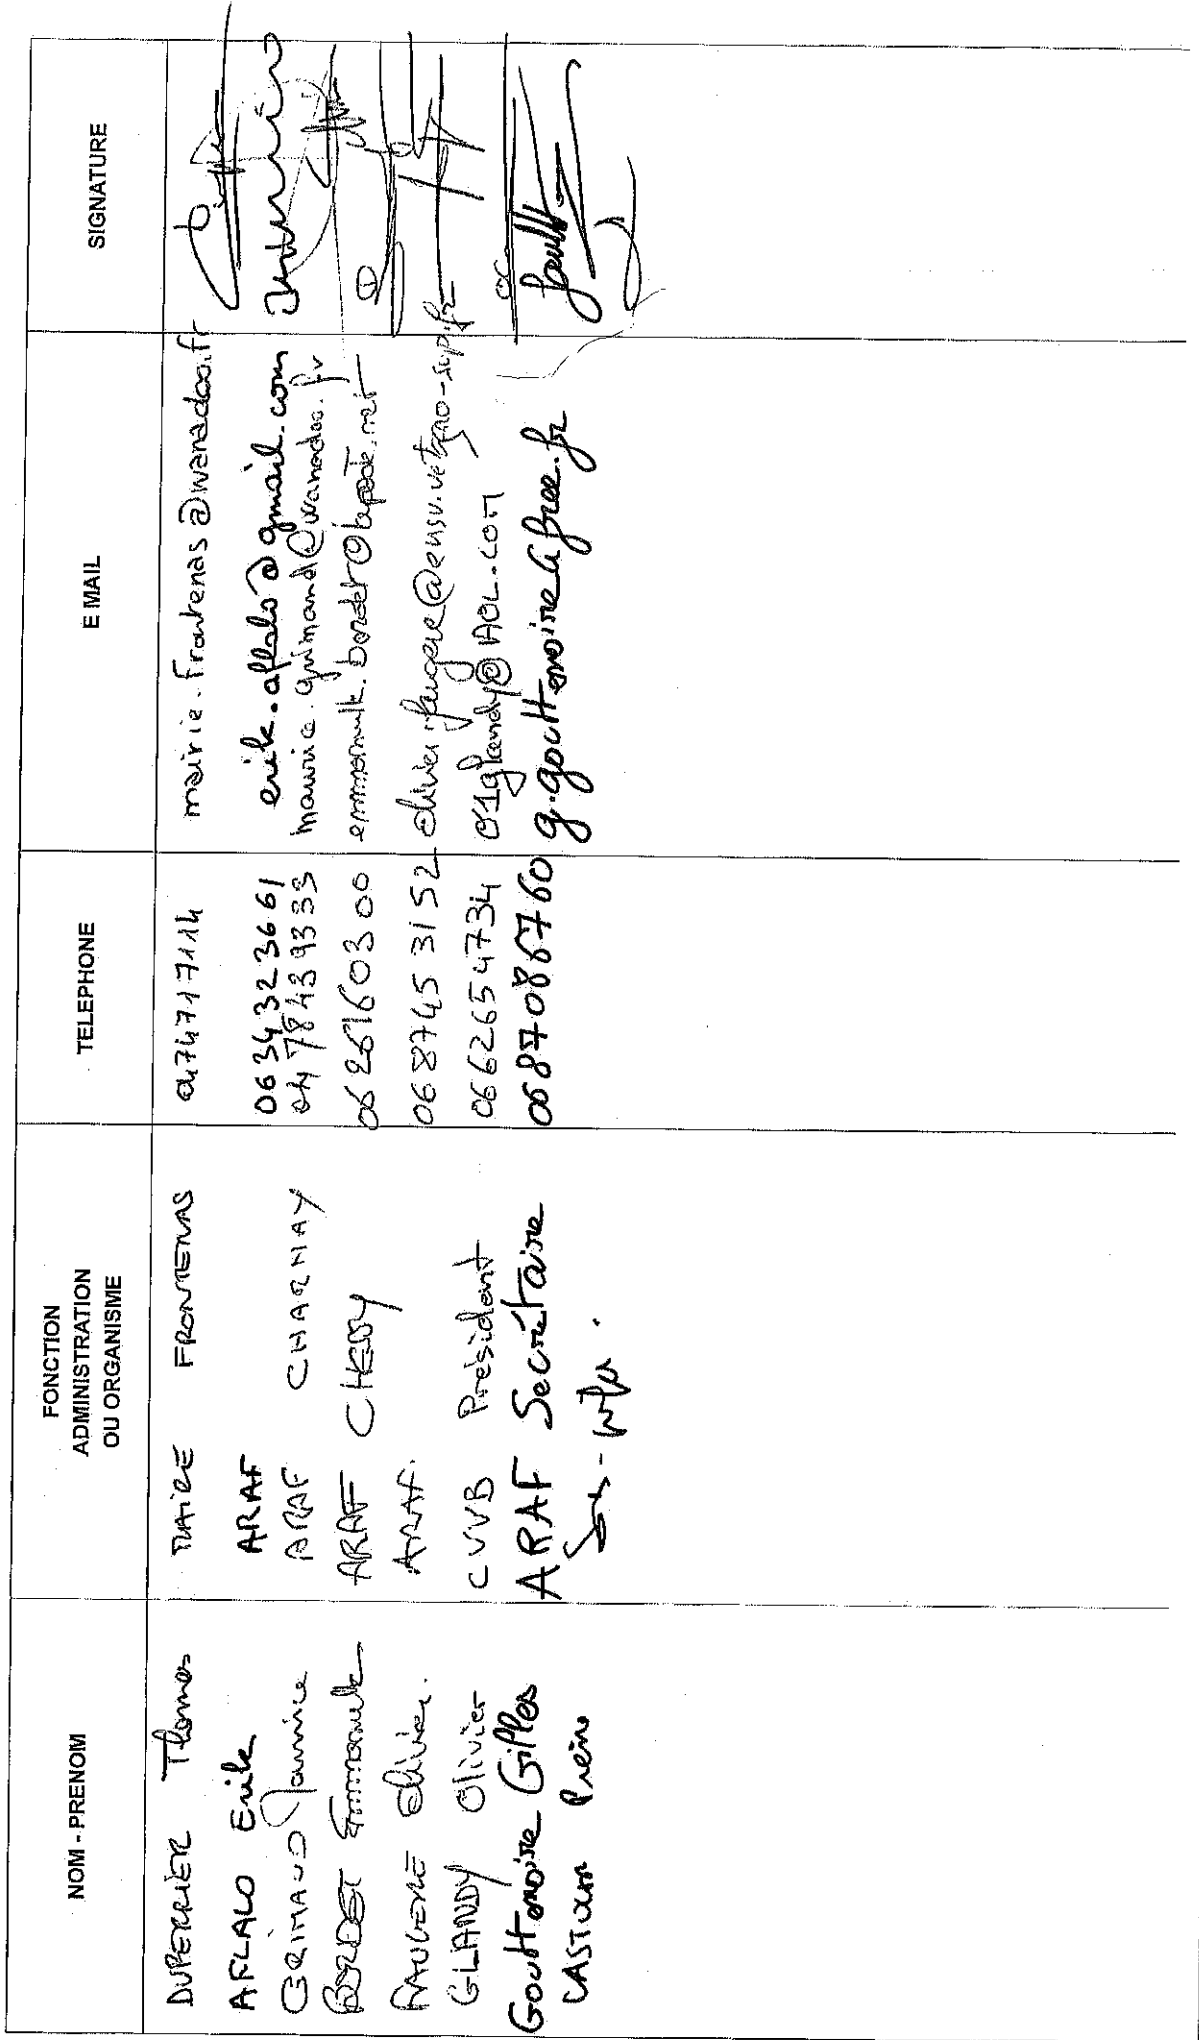 NOM - PRENOM	FONCTION ADMINISTRATION OU ORGANISME	TELEPHONE	E MAIL	SIGNATURE
DUPERRIER Thomas	MAIRE FRONTENAS	0474717114	mairie.frontenas@wanadoo.fr
AFLALO Erik	ARAF	0634323661	erik.aflalo@gmail.com
GRIMAUD Maurice	ARAF CHARNAY	0478439333	maurice.grimaud@wanadoo.fr
BORDET Emmanuelle	ARAF CHESSY	0626160300
FAUGERE Olivier.	ARAF.	0687453152
GLANDY Olivier	CVVB Président	0662654734	01glandy@AOL.COM
Gouttenoire Gilles	ARAF Secrétaire	0687086760	g.gouttenoire@free.fr